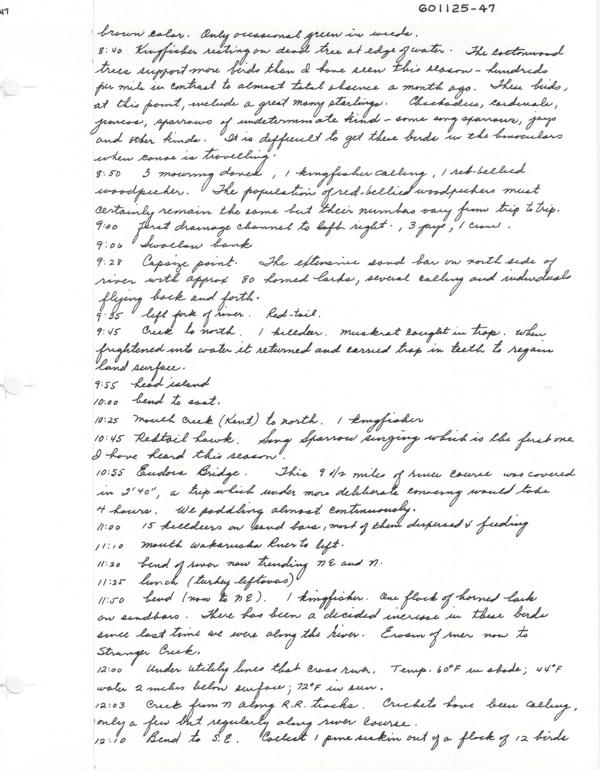 47
601125-47
brown color. Only occasional green in weeds.
8:40 Kingfisher resting on dead tree at edge of water. The cottonwood
trees support more birds than I have seen this season - hundreds
per mile in contrast to almost total absence a month ago. These birds,
at this point, include a great many starlings. Chickadees, cardinals,
juncos, sparrows of undeterminate kind - some song sparrows, jays
and other kinds. It is difficult to get these birds in the binoculars
when canoe is travelling.
8:50 3 mourning doves, 1 kingfisher calling, 1 red-bellied
woodpecker. The population of red-bellied woodpeckers must
certainly remain the same but their numbers vary from trip to trip.
9:00 first drainage channel to left right., 3 jays, 1 crow.
9:06 Swallow bank
9:28 Capsize point. The extensive sand bar on north side of
river with approx 80 horned larks, several calling and individuals
flying back and forth.
9:35 left fork of river. Red-tail.
9:45 Creek to north. 1 killdeer. Muskrat caught in trap. When
frightened into water it returned and carried trap in teeth to regain
land surface.
9:55 head island
10:00 bend to east.
10:25 mouth Creek (Kent) to north. 1 kingfisher
10:45 Redtail hawk. Song Sparrow singing which is the first one
I have heard this season.
10:55 Eudora Bridge. This 9 1/2 miles of river course was covered
in 2'40", a trip which under more deliberate canoeing would take
4 hours. We paddling almost continuously.
11:00 15 killdeers on sand bars, most of them dispersed & feeding
11:10 mouth Wakarusa River to left.
11:20 bend of river now trending NE and N.
11:25 lunch (turkey leftovers)
11:50 bend (now to NE). 1 kingfisher. One flock of horned lark
on sandbars. There has been a decided increase in these birds
since last time we were along the river. Erosion of river now to
Stranger Creek.
12:00 Under utility lines that cross river. Temp. 60°F in shade; 44°F
water 2 inches below surface; 72°F in sun.
12:03 Creek from N along R.R. tracks. Crickets have been calling,
only a few but regularly along river course.
12:10 Bend to S.E. Collect 1 pine siskin out of a flock of 12 birds